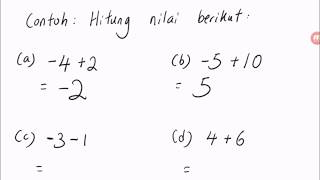 Contoh: Hitung nilai berikut:
(a) -4+2
= -2
(b) -5+10
= 5
(c) -3-1
=
(d) 4+6
=